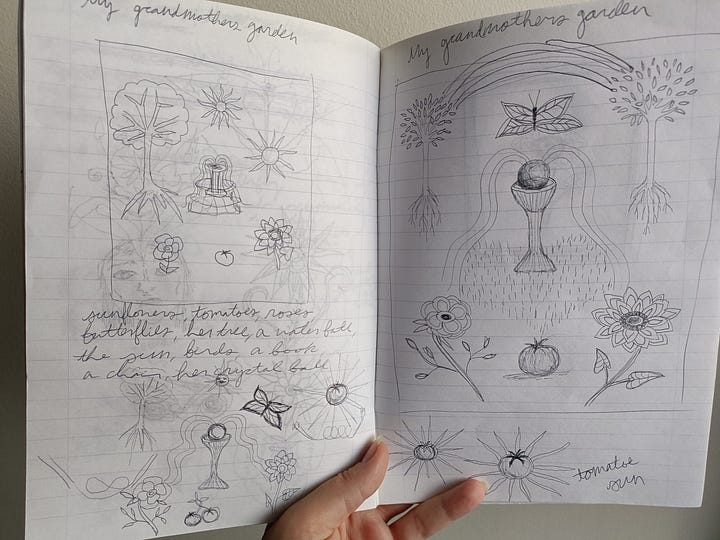 My grandmothers garden
sunflowers, tomatoes, roses
butterflies, her tree, a water bath,
the sun, birds a book
a chair, her crystal ball
My grandmothers garden
tomatoe
sun